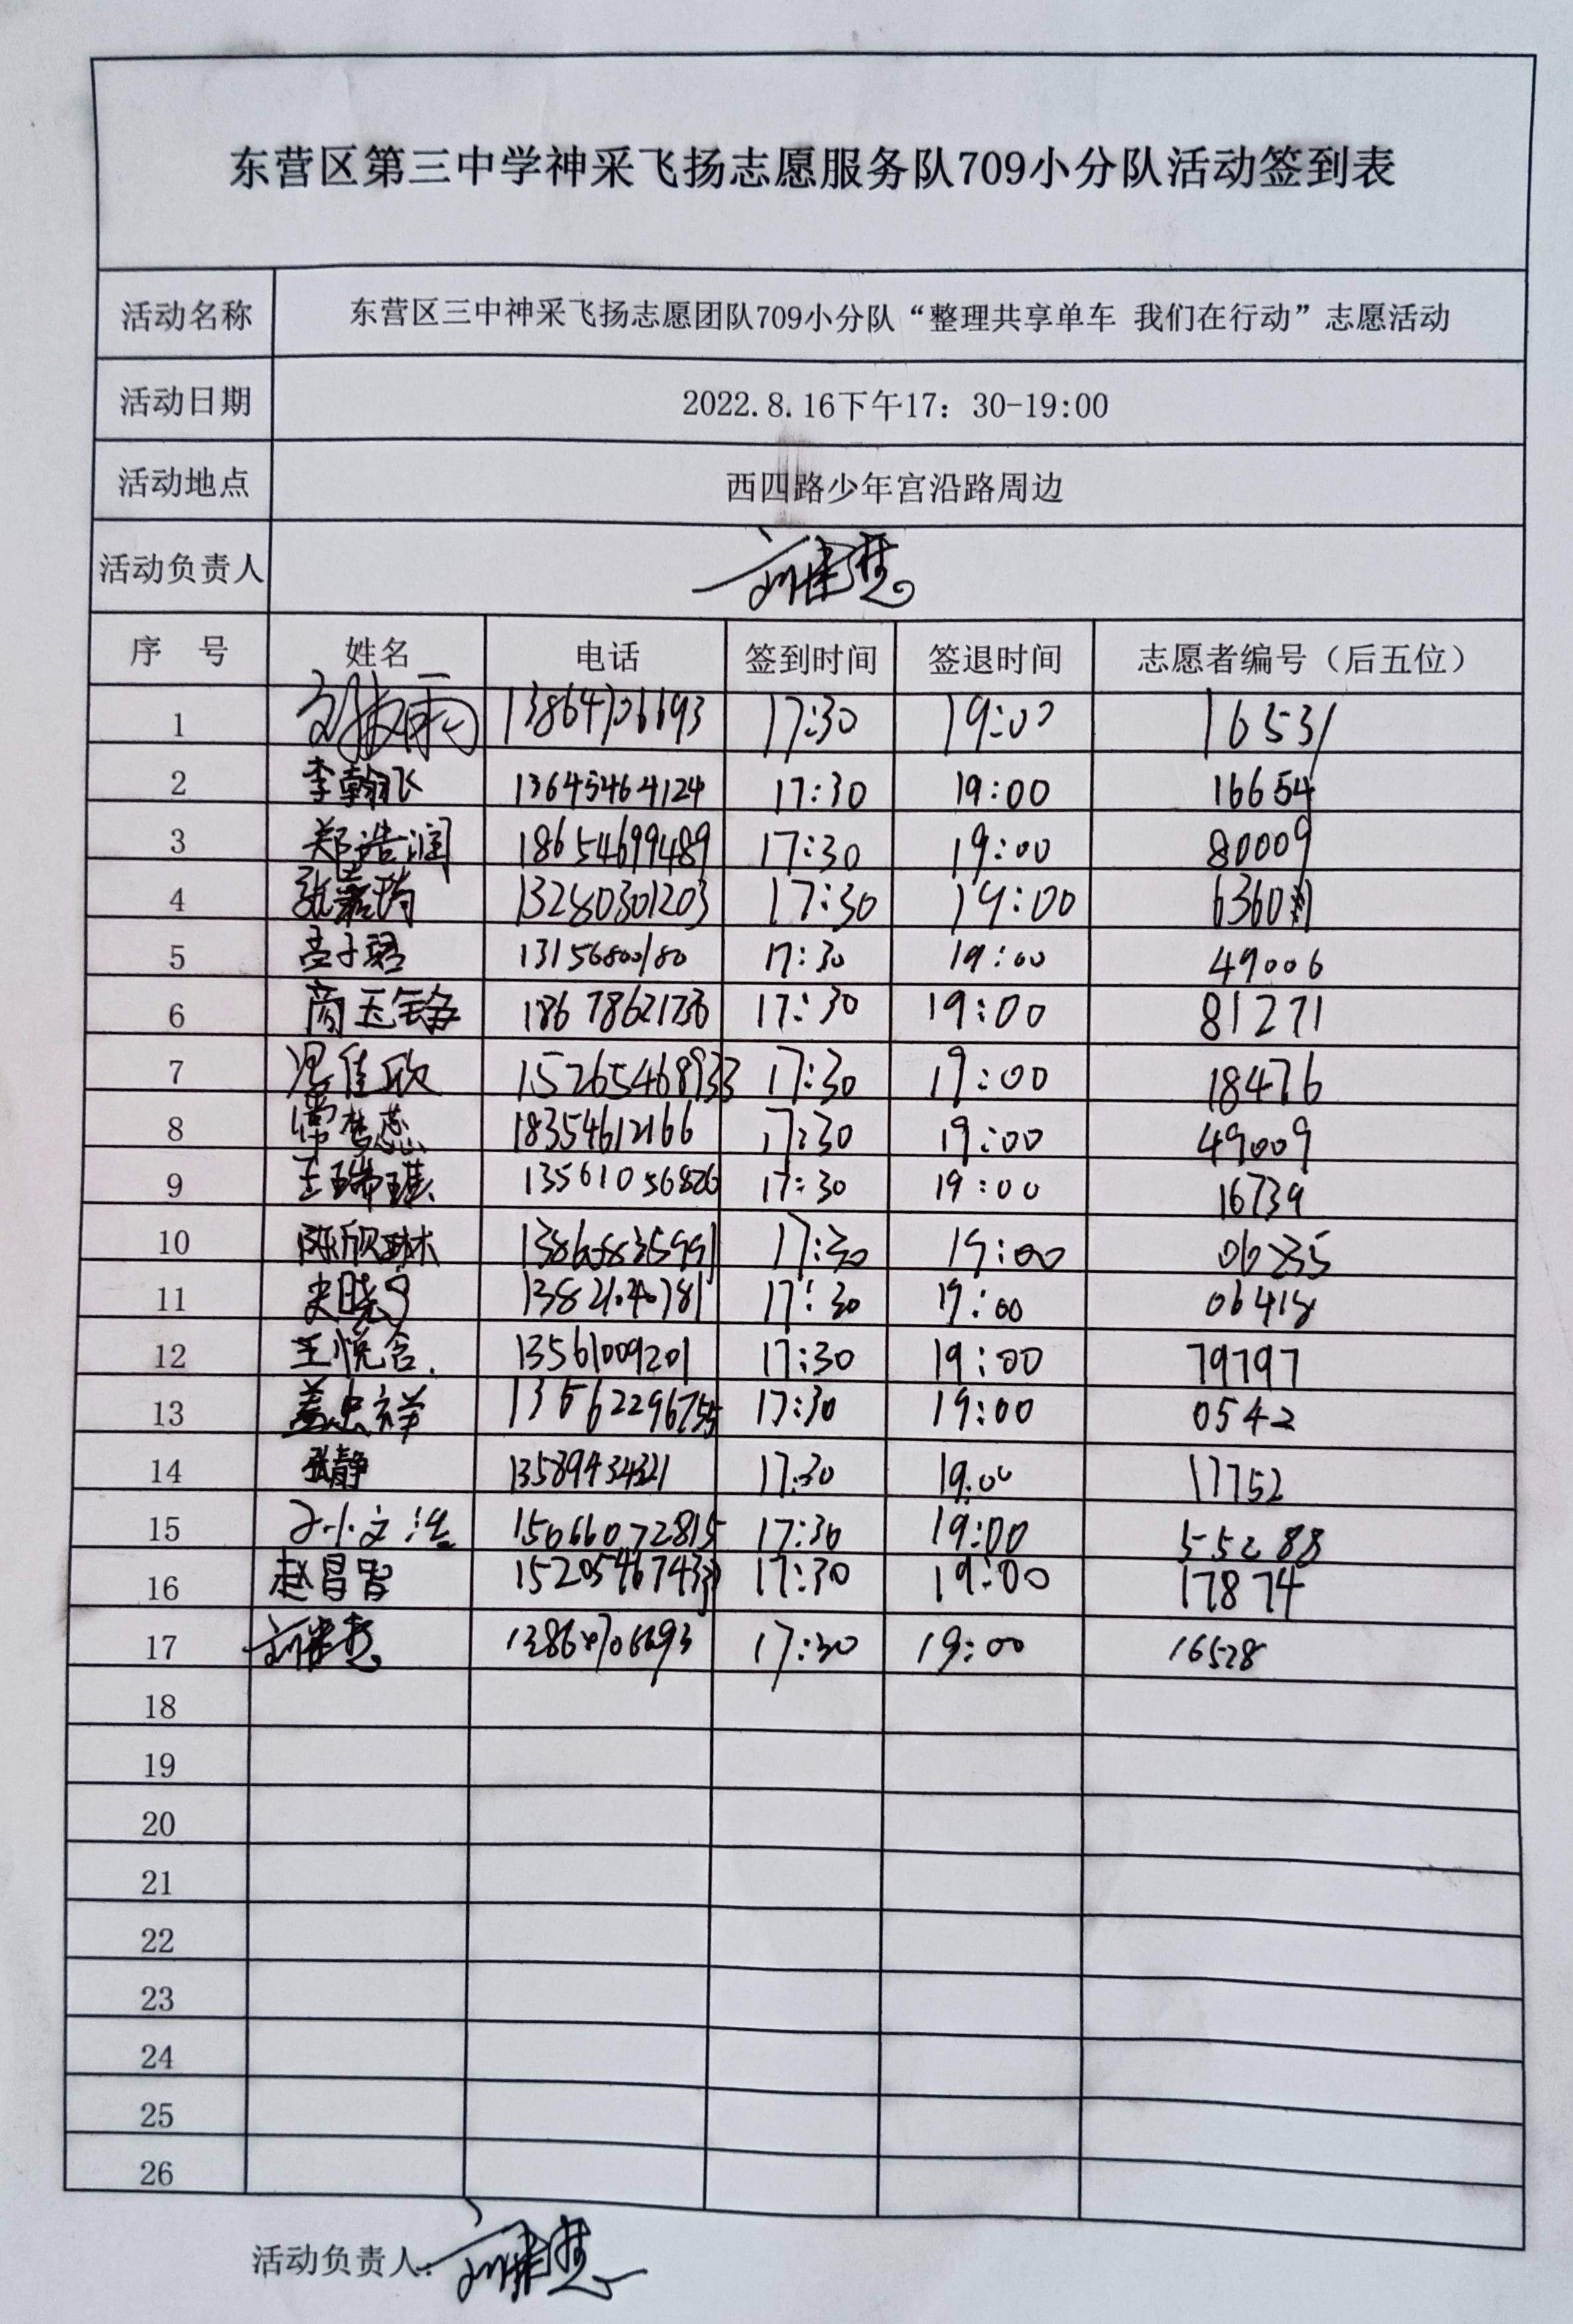 东营区第三中学神采飞扬志愿服务队709小分队活动签到表
活动名称 东营区三中神采飞扬志愿团队709小分队“整理共享单车 我们在行动”志愿活动
活动日期 2022.8.16下午17：30-19:00
活动地点 西四路少年宫沿路周边
活动负责人
序 号 姓名 电话 签到时间 签退时间 志愿者编号（后五位）
1 13864706693 17:30 19:00 16531
2 李翰飞 13645464124 17:30 19:00 16654
3 郑浩润 18654699489 17:30 19:00 80009
4 13280301203 17:30 19:00
5 13156800180 17:30 19:00 49006
6 商玉铮 18678621736 17:30 19:00 81271
7 15265468933 17:30 19:00 18476
8 常梦蕊 18354612166 17:30 19:00 49009
9 王瑞琪 13561056826 17:30 19:00 16739
10 陈欣琳 17:30 19:00
11 史晓 17:30 19:00 06418
12 王悦含. 13561009201 17:30 19:00 79797
13 盖忠祥 17:30 19:00 0542
14 张静 13589434321 17:30 19:00 17752
15 孙文浩 15066072815 17:30 19:00 55288
16 赵昌智 17:30 19:00 17874
17 17:30 19:00 16528
18
19
20
21
22
23
24
25
26
活动负责人: